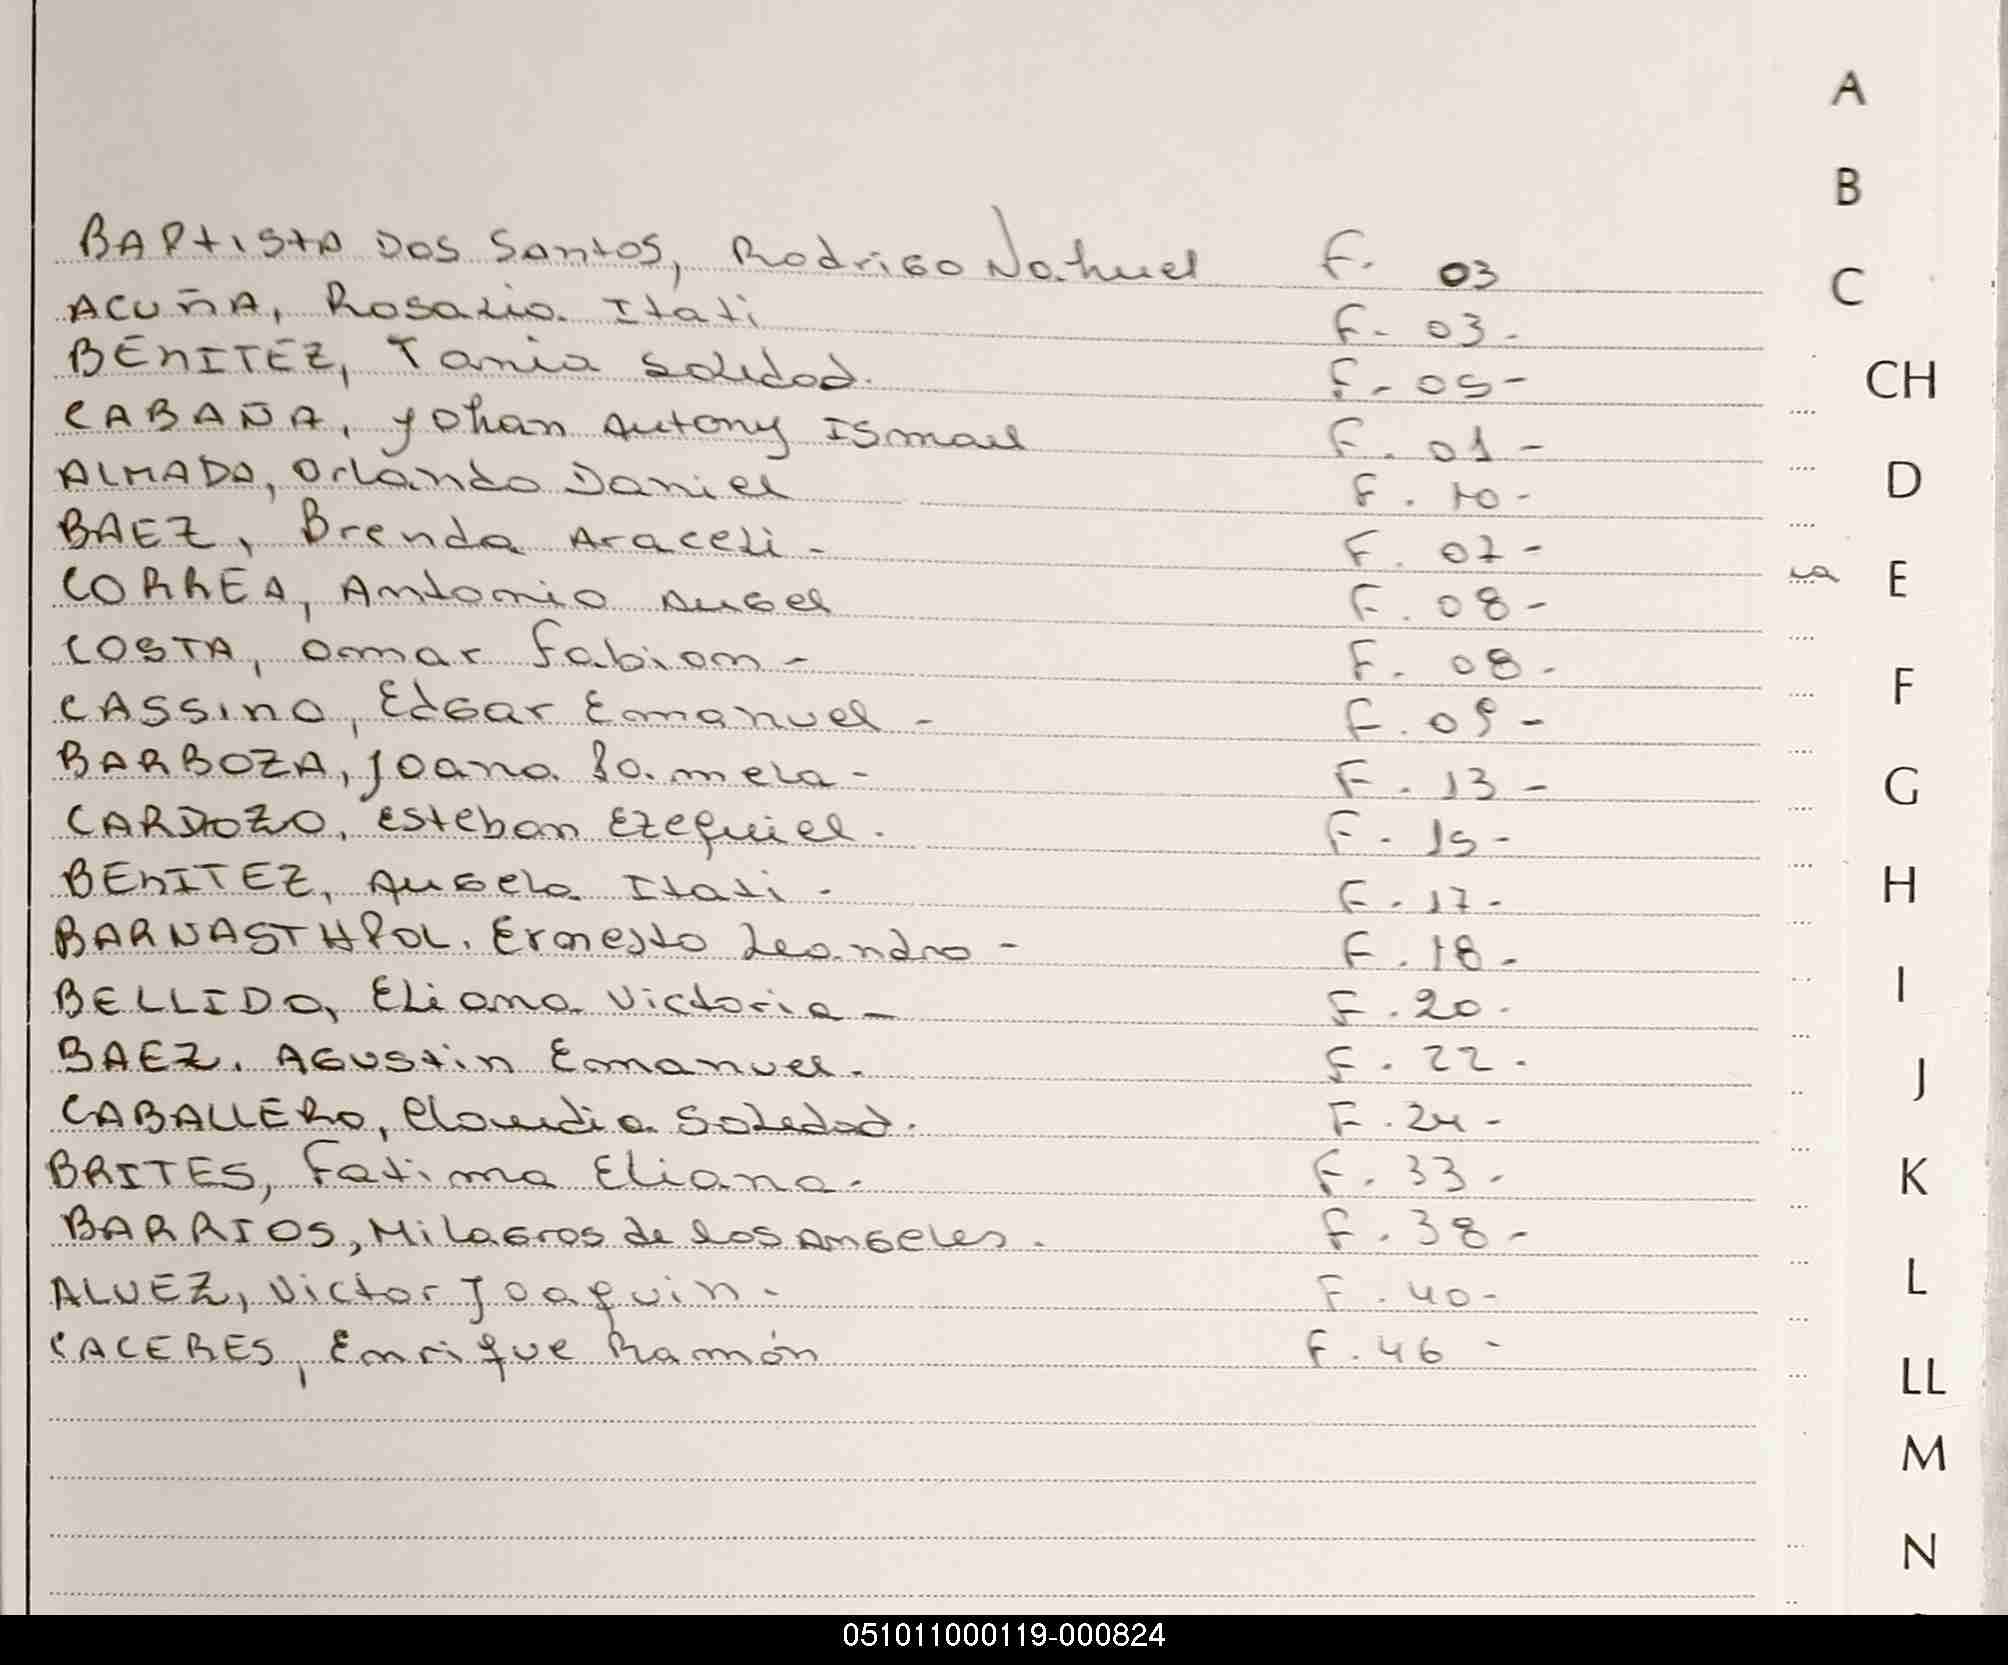 BAPtistA Dos Santos, Rodrigo Nahuel F. 03
ACUÑA, Rosario Itati F- 03-
BENITEZ, Tania Soledad. F- 05-
CABAÑA, Yohan Antony Ismael F. 01-
ALMADA, Orlando Daniel F. 10-
BAEZ, Brenda Araceli- F. 07-
CORREA, Antonio Angel F. 08-
COSTA, Omar Fabian- F. 08-
CASSINO, Edgar Emanuel- F. 09-
BARBOZA, Joana Pamela- F. 13-
CARDOZO, Esteban Ezequiel. F. 15-
BENITEZ, Angela Itati- F. 17-
BARNASTHPOL. Ernesto Leandro- F. 18-
BELLIDO, Eliana Victoria- F. 20-
BAEZ. Agustin Emanuel. F. 22.
CABALLERO, Claudia Soledad. F. 24-
BRITES, Fatima Eliana. F. 33-
BARRIOS, Milagros de los Angeles. F. 38-
ALVEZ, Victor Joaquin- F. 40-
CACERES, Enrique Ramón F. 46-
A
B
C
CH
D
E
F
G
H
I
J
K
L
LL
M
N
051011000119-000824